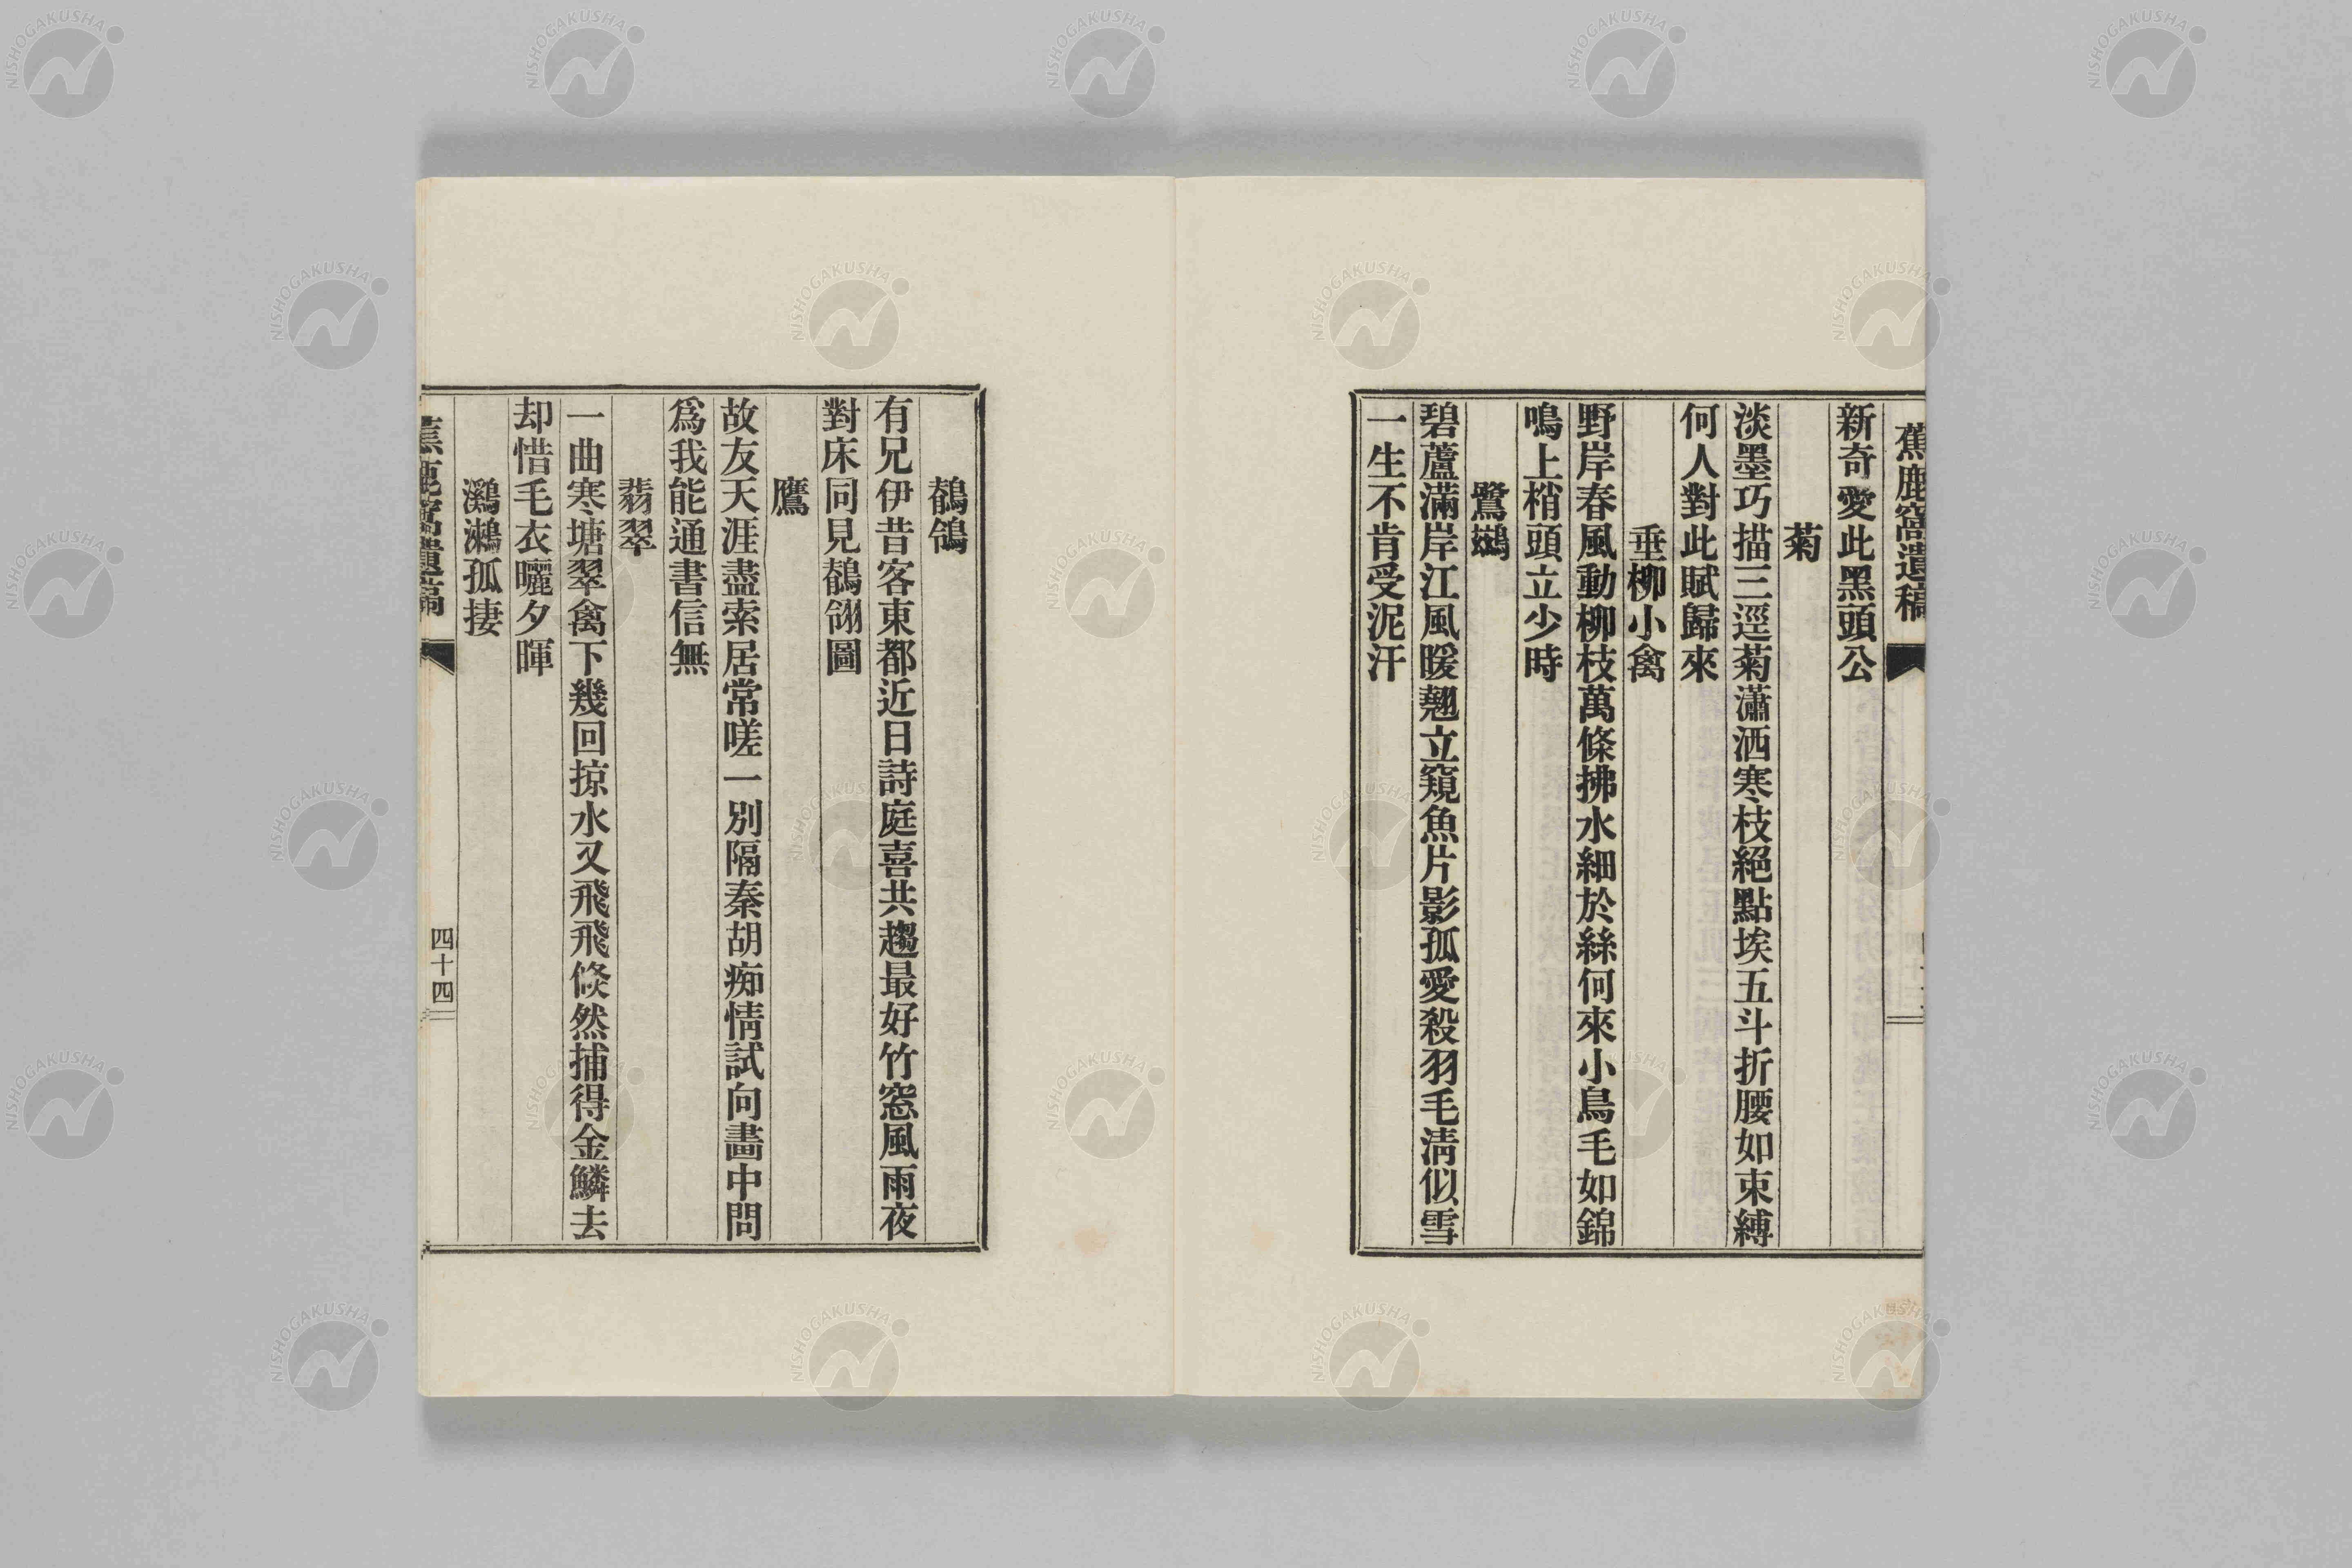 蕉鹿窩遺稿
新奇愛此黑頭公
菊
淡墨巧描三逕菊瀟洒寒枝絕點埃五斗折腰如束縛
何人對此賦歸來
垂柳小禽
野岸春風動柳枝萬條拂水細於絲何來小鳥毛如錦
鳴上梢頭立少時
鷺鷀
碧蘆滿岸江風暖翹立窺魚片影孤愛殺羽毛淸似雪
一生不肯受泥汗
鶺鴒
有兄伊昔客東都近日詩庭喜共趨最好竹窓風雨夜
對床同見鶺翎圖
鷹
故友天涯盡索居常嗟一別隔秦胡痴情試向畵中問
爲我能通書信無
翡翠
一曲寒塘翠禽下幾回掠水又飛飛倏然捕得金鱗去
却惜毛衣曬夕暉
鸂鶒孤捿
蕉鹿窩遺稿
四十四
NISHOGAKUSHA